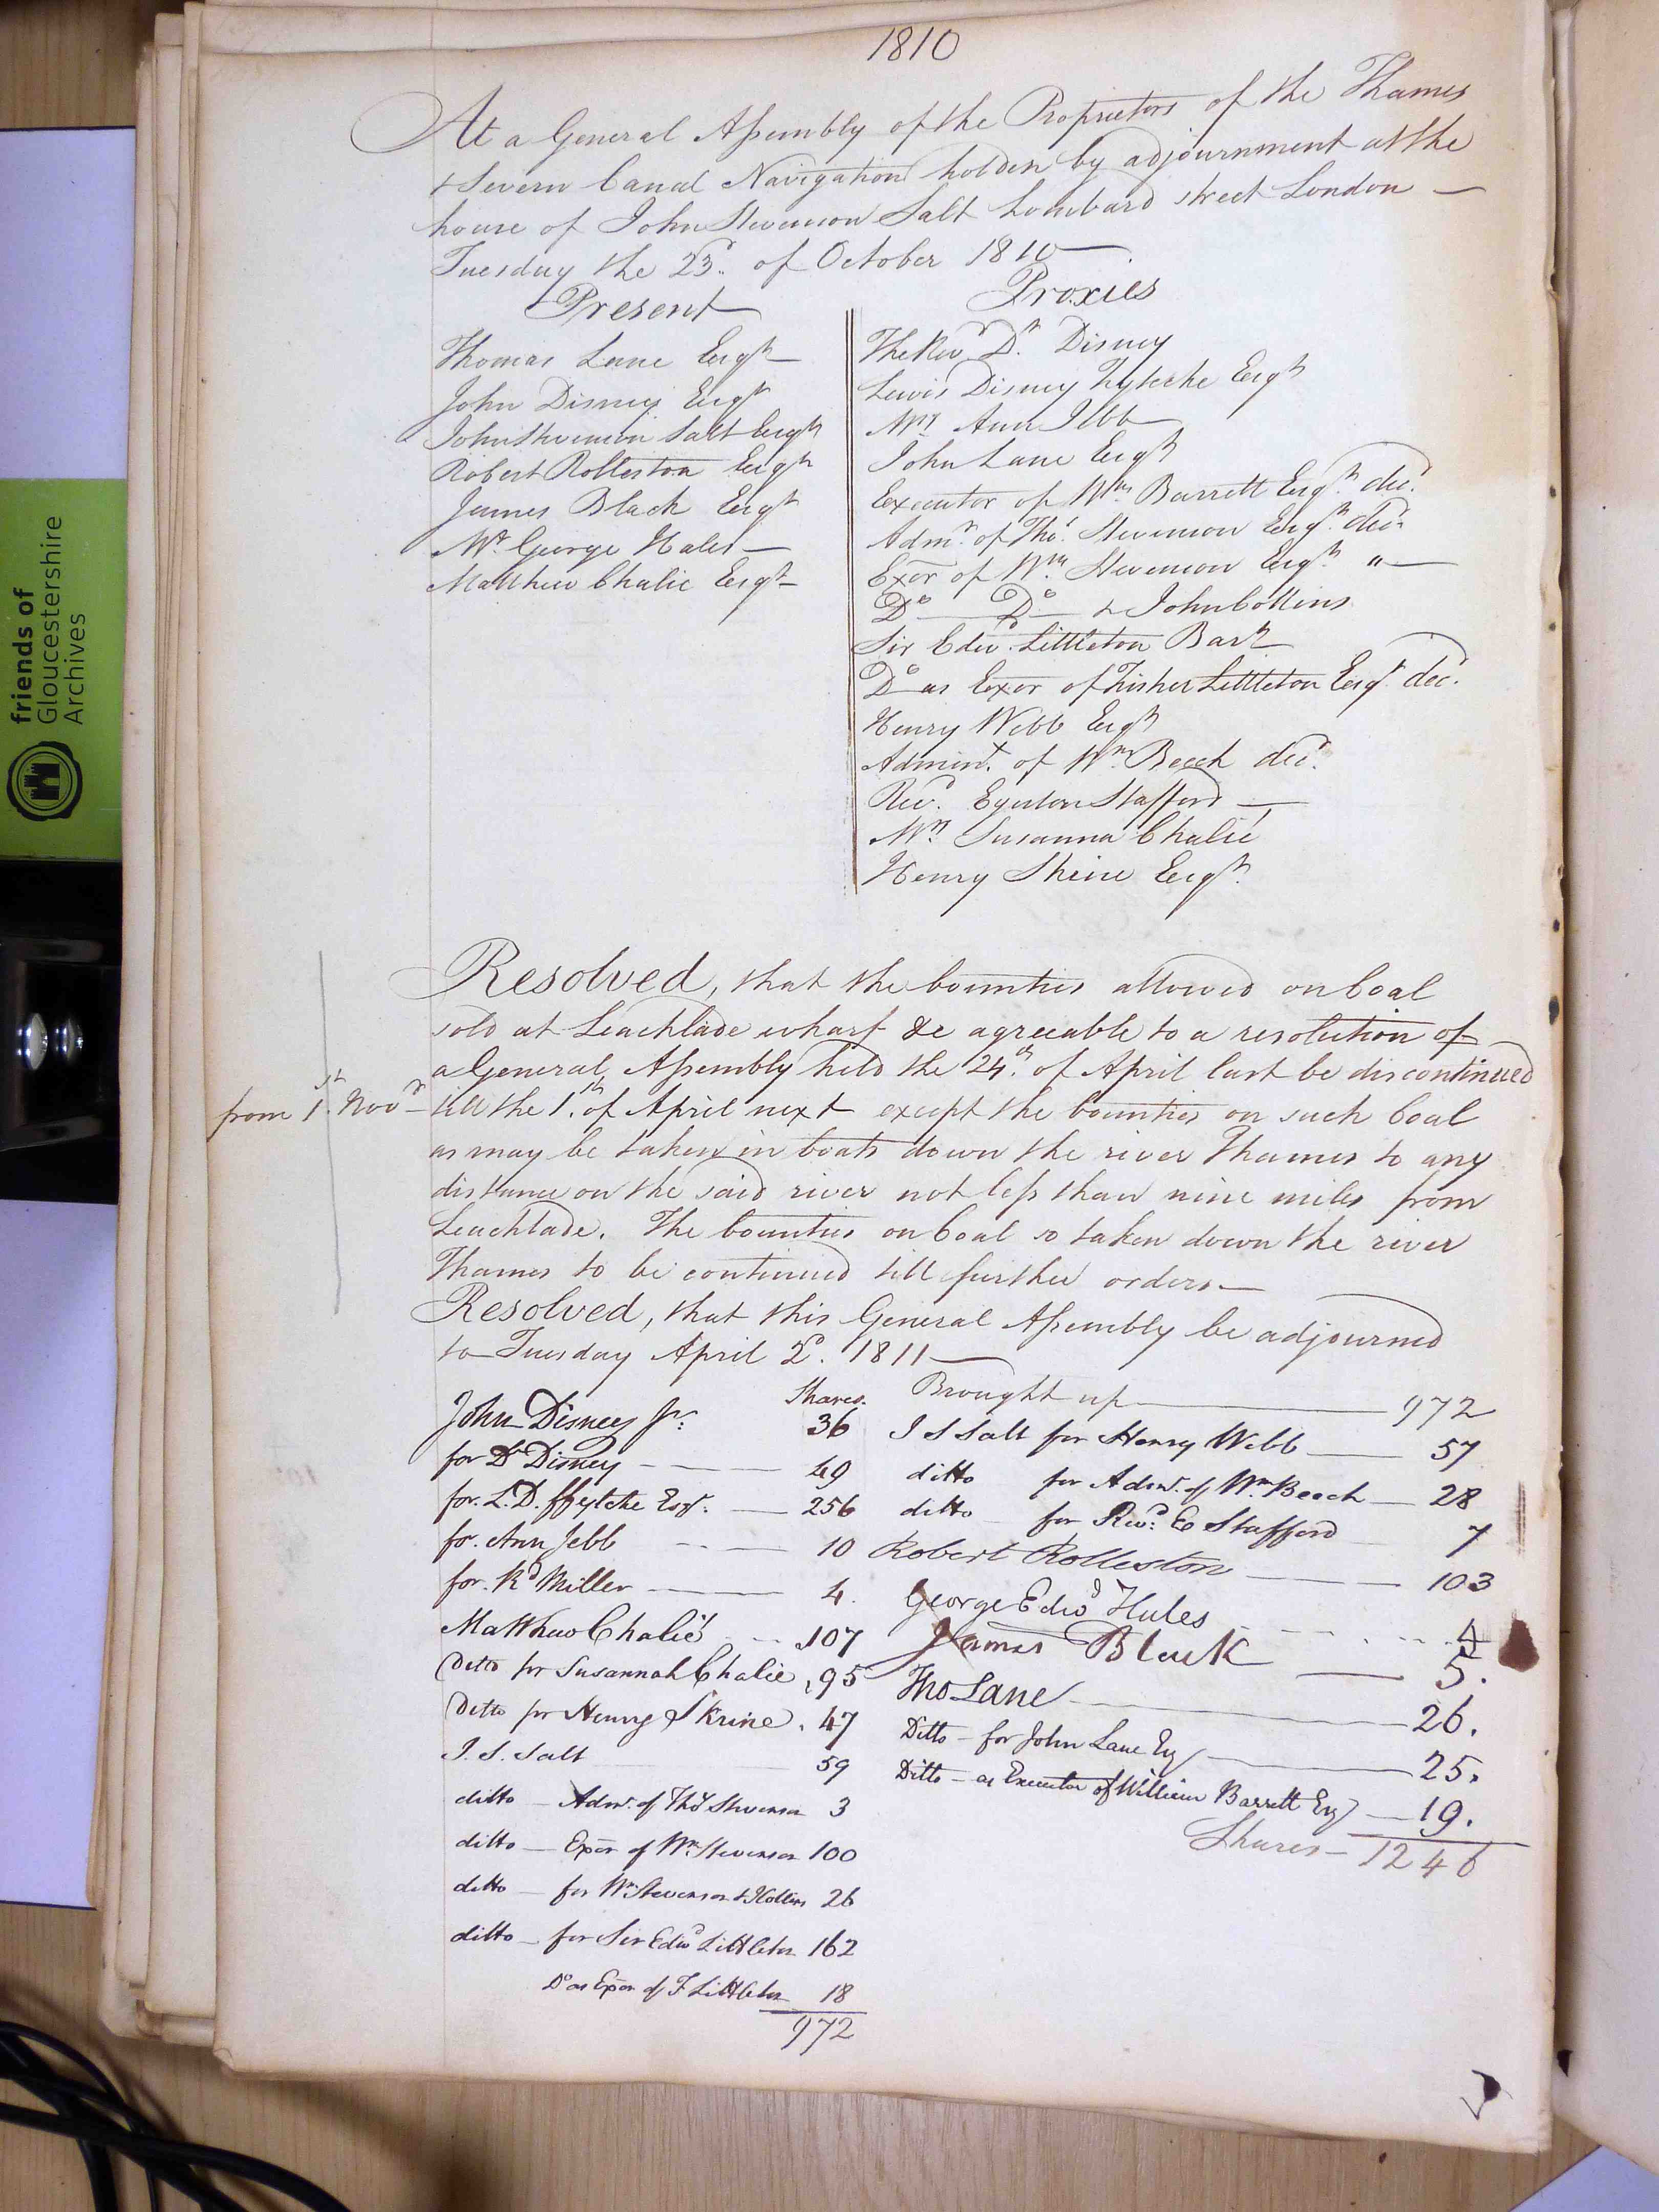 1810
At a General Assembly of the Proprietors of the Thames
& Severn Canal Navigation holden by adjournment at the
house of John Stevenson Salt Lombard street London —
Tuesday the 23d. of October 1810 —
Present
Thomas Lane Esqr
John Disney Esqr
John Stevenson Salt Esqr
Robert Rolleston Esqr
James Black Esqr
Mr. George Hales —
Matthew Chalie Esqr
Proxies
The Revd Dr. Disney
Lewis Disney Fytche Esqr
Mrs Ann Jebb
John Lane Esqr
Executor of Wm Barrett Esqr. decd.
Admr. of Thos. Stevenson Esqr. decd.
Exor of Wm. Stevenson Esqr. "—
Do — Do — & John Collins
Sir Edwd. Littleton Bart
Do as Exor of Fisher Littleton Esqr. decd.
Henry Webb Esqr
Adminr. of Wm. Beech decd.
Revd. Egerton Stafford —
Mrs. Susanna Chalié
Henry Skrine Esqr.
Resolved, that the bounties allowed on Coal
sold at Leachlade wharf &c agreeable to a resolution of
a General Assembly held the 24th. of April last be discontinued
from 1st. Novr
till the 1st. of April next except the bounties on such Coal
as may be taken in boats down the river Thames to any
distance on the said river not less than nine miles from
Leachlade. The bounties on Coal so taken down the river
Thames to be continued till further orders —
Resolved, that this General Assembly be adjourned
to Tuesday April 2d. 1811 —
Shares.
John Disney Jr. 36
for Dr Disney — 49
for. L. D. ffytche Esqr. — 256
for. Ann Jebb — 10
for. Rd Miller — 4.
Matthew Chalié — 107
Ditto for Susannah Chalie, 95
Ditto for Henry Skrine. 47
J. S. Salt 59
ditto — Admr. of Thos Stevenson 3
ditto — Exor of Wm. Stevenson 100
ditto — for Wm. Stevenson & J Collins 26
ditto — for Sir Edwd Littleton 162
Do as Exor of F Littleton 18
972
Brought up — 972
J S Salt for Henry Webb — 57
ditto for Admr. of Wm Beech — 28
ditto — for Revd: E Stafford 7
Robert Rolleston — 103
George Edwd Hales 4
James Black — 5.
Tho Lane — 26.
Ditto — for John Lane Esq — 25.
Ditto — as Executor of William Barrett Esq — 19.
Shares — 1246
friends of
Gloucestershire
Archives